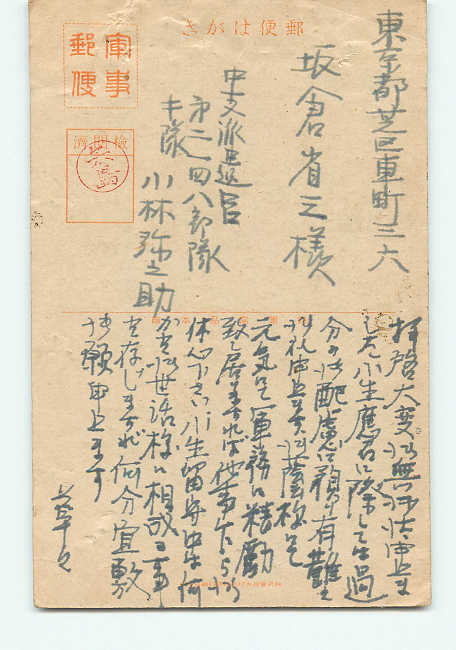 郵便はがき
軍事
郵便
検閲済
東京都芝区車町三六
坂倉省三様
中支派遣
第二一四八部隊
隊 小林弥之助
拝啓大変御無沙汰申上ま
した 小生応召に際しては過
分の御配慮に預り有難
御礼申上ます 御蔭様にて
元気にて軍務に精励
致し居ますれば他事ながら御
休心下さい 小生留守中は何
かと御世話様に相成る事
と存じますが何分宜敷
御願申上ます
草々